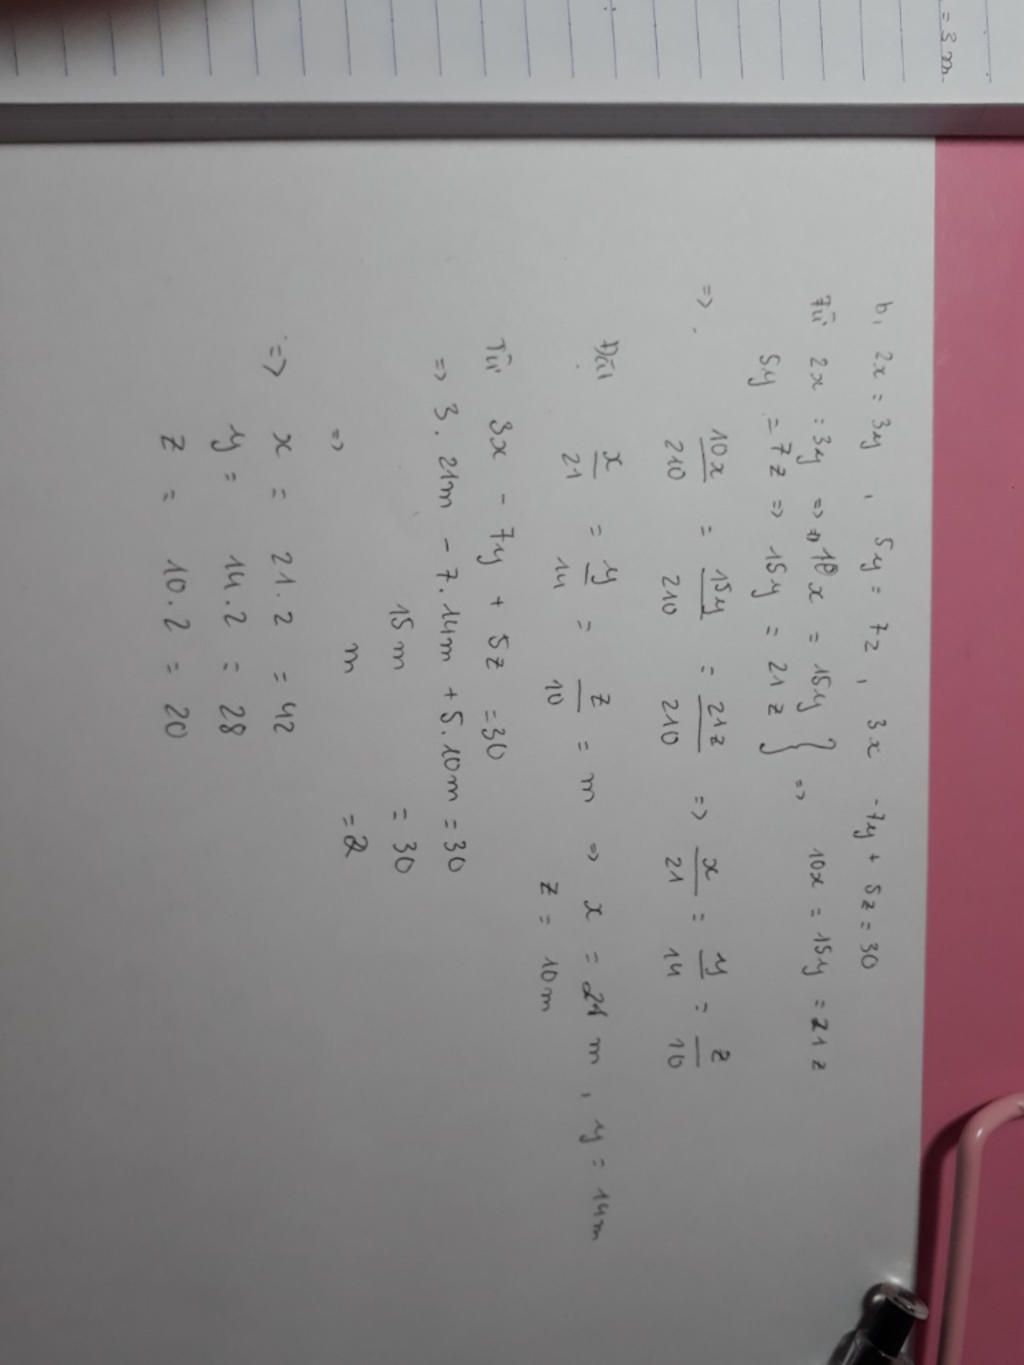 = 3 m
b, 2x = 3y , 5y = 7z , 3x - 7y + 5z = 30
Từ 2x = 3y => 10x = 15y } => 10x = 15y = 21z
5y = 7z => 15y = 21z
=> 10x/210 = 15y/210 = 21z/210 => x/21 = y/14 = z/10
Đặt x/21 = y/14 = z/10 = m => x = 21m , y = 14m
z = 10m
Từ 3x - 7y + 5z = 30
=> 3. 21m - 7. 14m + 5. 10m = 30
15m = 30
=> m = 2
=> x = 21.2 = 42
y = 14.2 = 28
z = 10.2 = 20